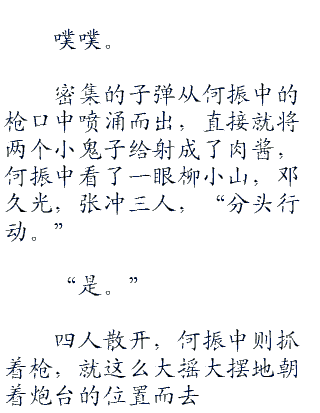 噗噗。
密集的子弹从何振中的
枪口中喷涌而出，直接就将
两个小鬼子给射成了肉酱，
何振中看了一眼柳小山，邓
久光，张冲三人，“分头行
动。”
“是。”
四人散开，何振中则抓
着枪，就这么大摇大摆地朝
着炮台的位置而去